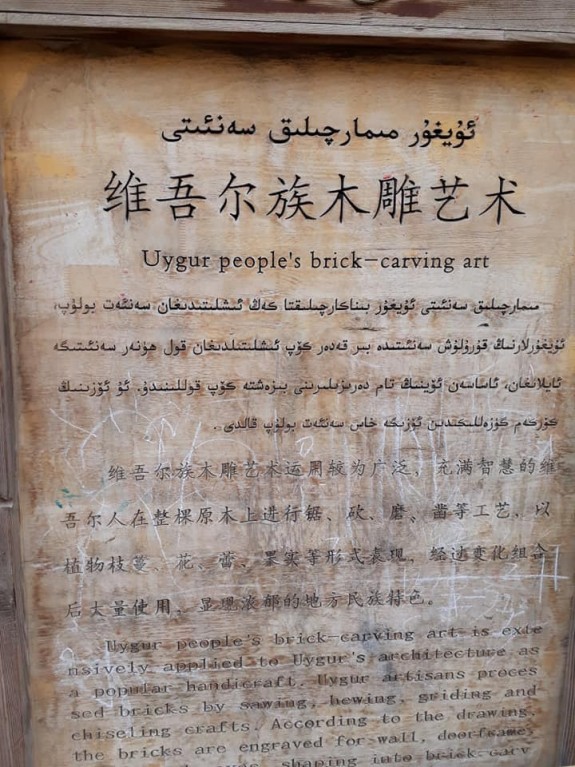 ئۇيغۇر مىمارچىلىق سەنئىتى
维吾尔族木雕艺术
Uygur people's brick-carving art
مىمارچىلىق سەنئىتى ئۇيغۇر بىناكارچىلىقتا كەڭ ئىشلىتىدىغان سەنئەت بولۇپ،
ئۇيغۇرلارنىڭ قۇرۇلۇش سەنئىتىدە بىر قەدەر كۆپ ئىشلىتىلدىغان قول ھۈنەر سەنئىتىگە
ئايلانغان، ئاساسەن ئۆينىڭ تام دەرىزىلىرىنى بىزەشتە كۆپ قوللىنىدۇ. ئۇ ئۆزىنىڭ
كۆركەم گۈزەللىكىدىن ئۆزىگە خاس سەنئەت بولۇپ قالدى.
维吾尔族木雕艺术运用较为广泛，充满智慧的维
吾尔人在整棵原木上进行锯、砍、磨、凿等工艺，以
植物枝蔓、花、蕾、果实等形式表现，经过变化组合
后大量使用，显现浓郁的地方民族特色。
Uygur people's brick-carving art is exte
nsively applied to Uygur's architecture as
a popular handicraft. Uygur artisans proces
sed bricks by sawing, hewing, griding and
chiseling crafts. According to the drawing,
the bricks are engraved for wall, doorframe,
shaping into brick carv